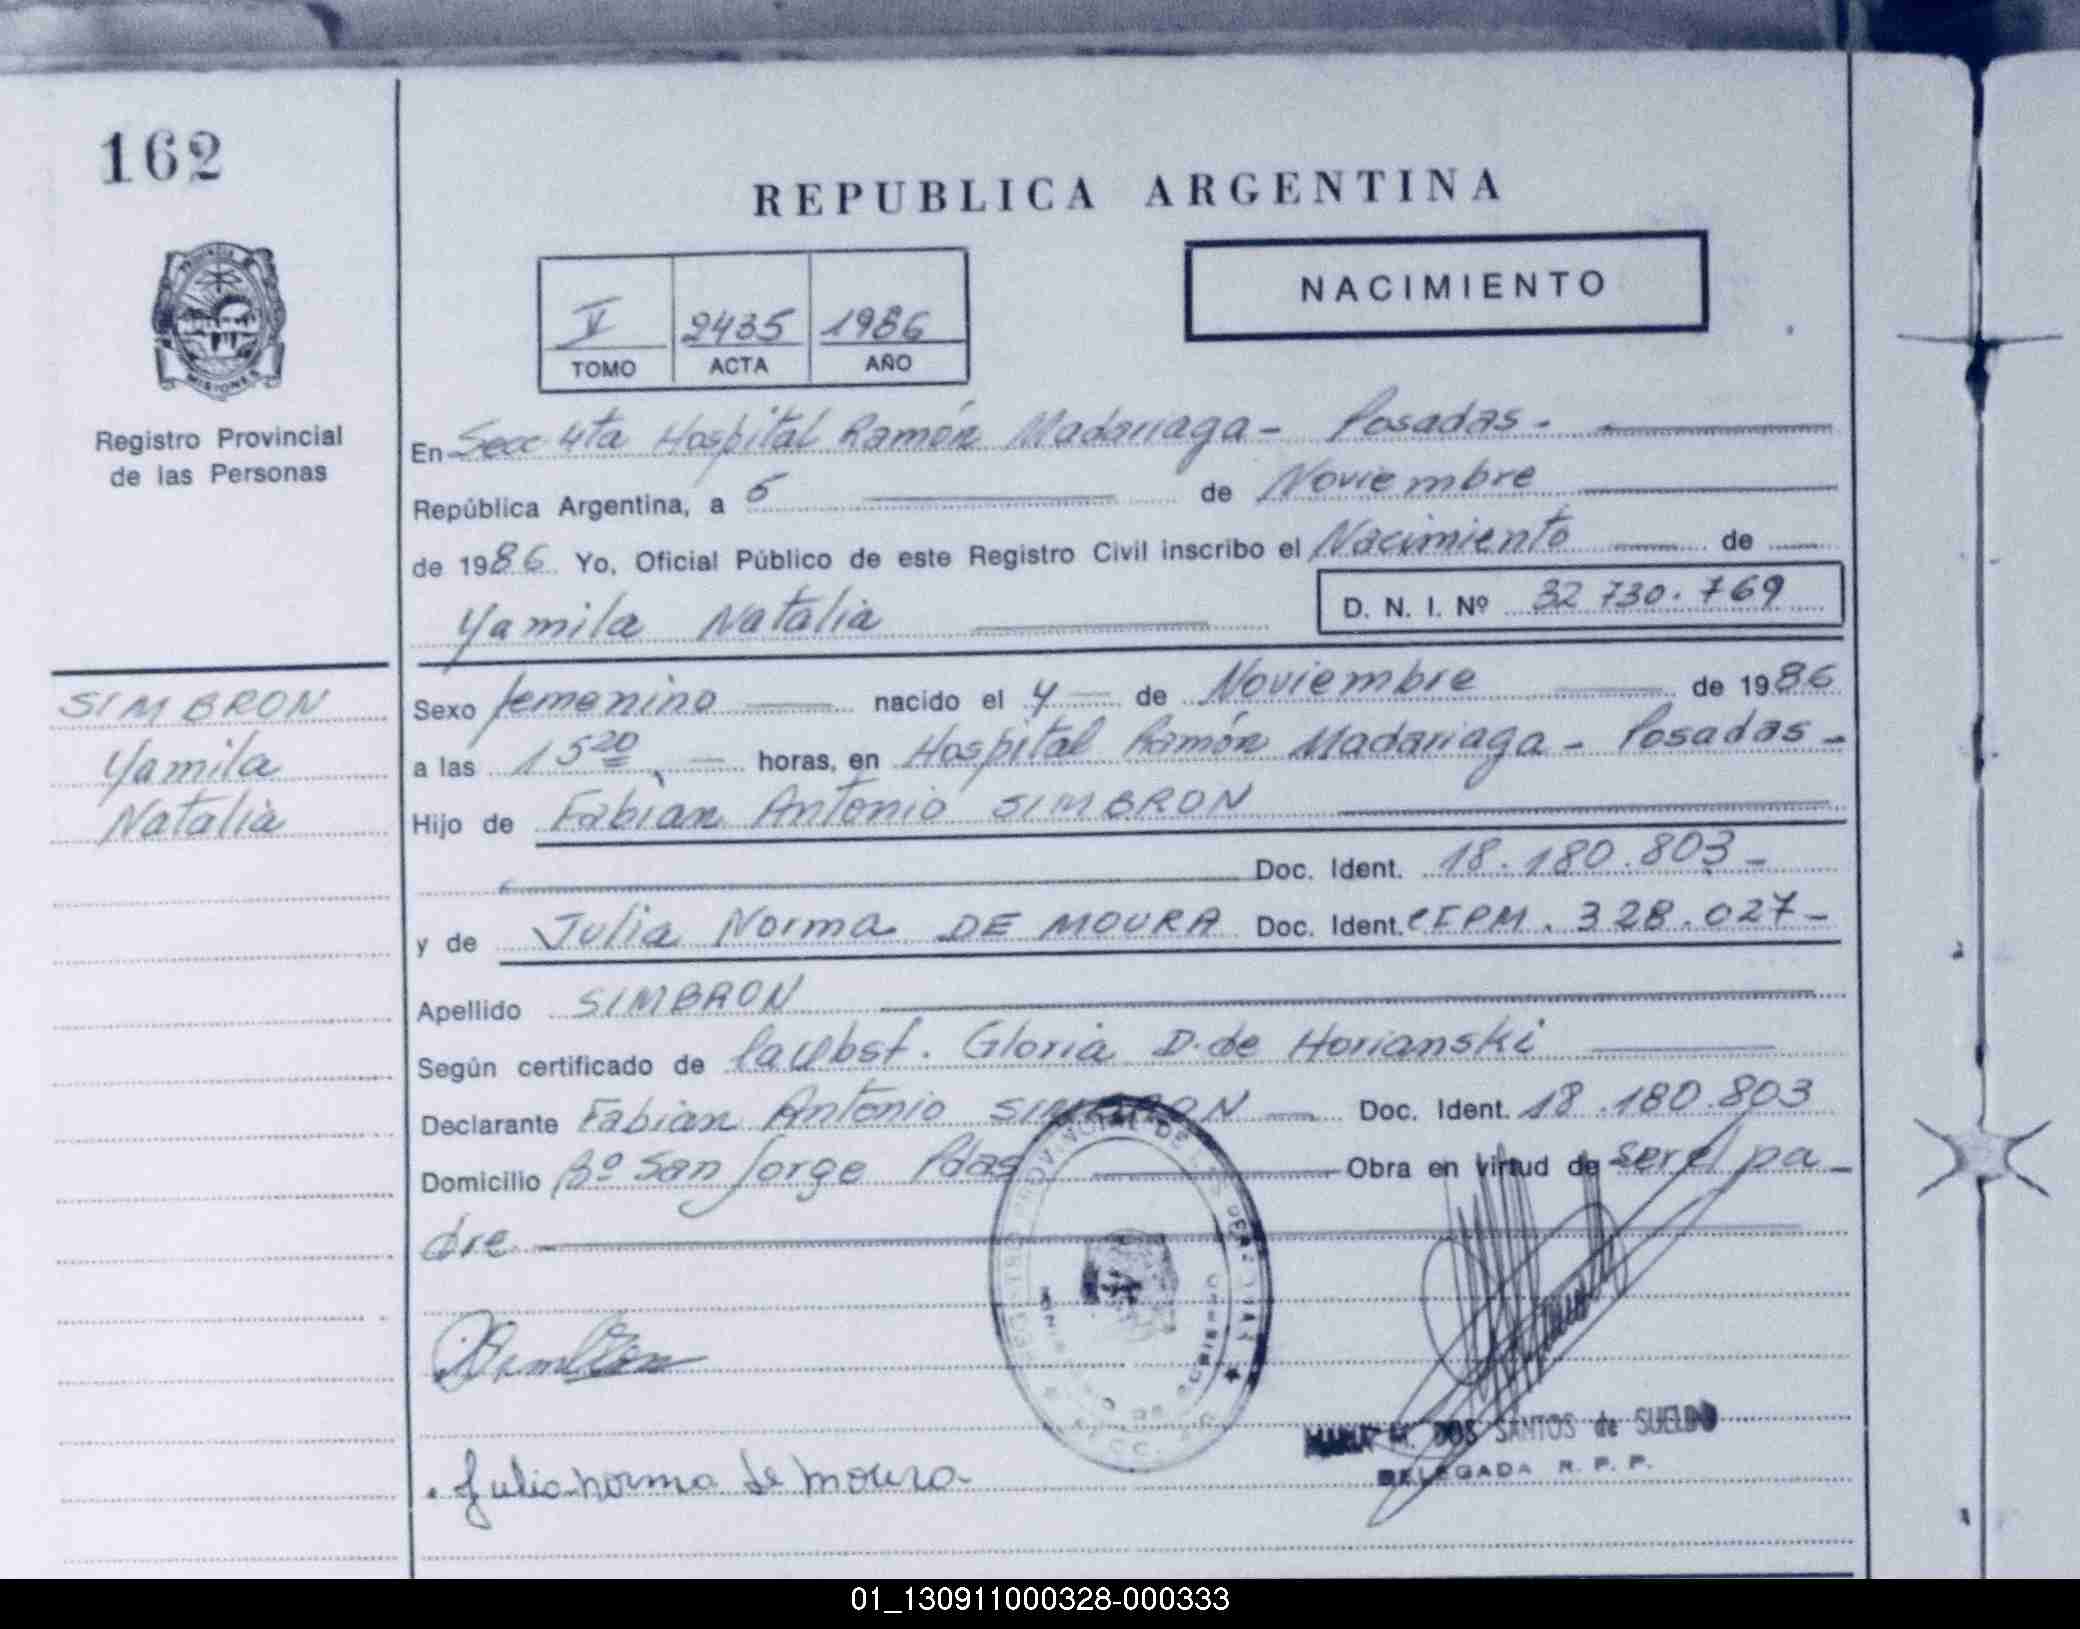 162
REPUBLICA ARGENTINA
NACIMIENTO
V 2435 1986
TOMO ACTA AÑO
Registro Provincial
de las Personas
En Secc 4ta Hospital Ramón Madariaga - Posadas.
República Argentina, a 5 de Noviembre
de 1986. Yo, Oficial Público de este Registro Civil inscribo el Nacimiento de
Yamila Natalia D. N. I. Nº 32 730.769
SIMBRON
Yamila
Natalia
Sexo femenino nacido el 4 de Noviembre de 1986
a las 15 20 horas, en Hospital Ramón Madariaga - Posadas -
Hijo de Fabian Antonio SIMBRON
Doc. Ident. 18.180.803 -
y de Julia Norma DE MOURA Doc. Ident. CIPM. 328.027 -
Apellido SIMBRON
Según certificado de la Obst. Gloria D. de Horianski
Declarante Fabian Antonio SIMBRON Doc. Ident. 18.180.803
Domicilio Bº San Jorge Pdas Obra en virtud de ser el pa -
dre
Julia norma de moura
MARIA M. DOS SANTOS de SUELDO
DELEGADA R. P. P.
01_130911000328-000333